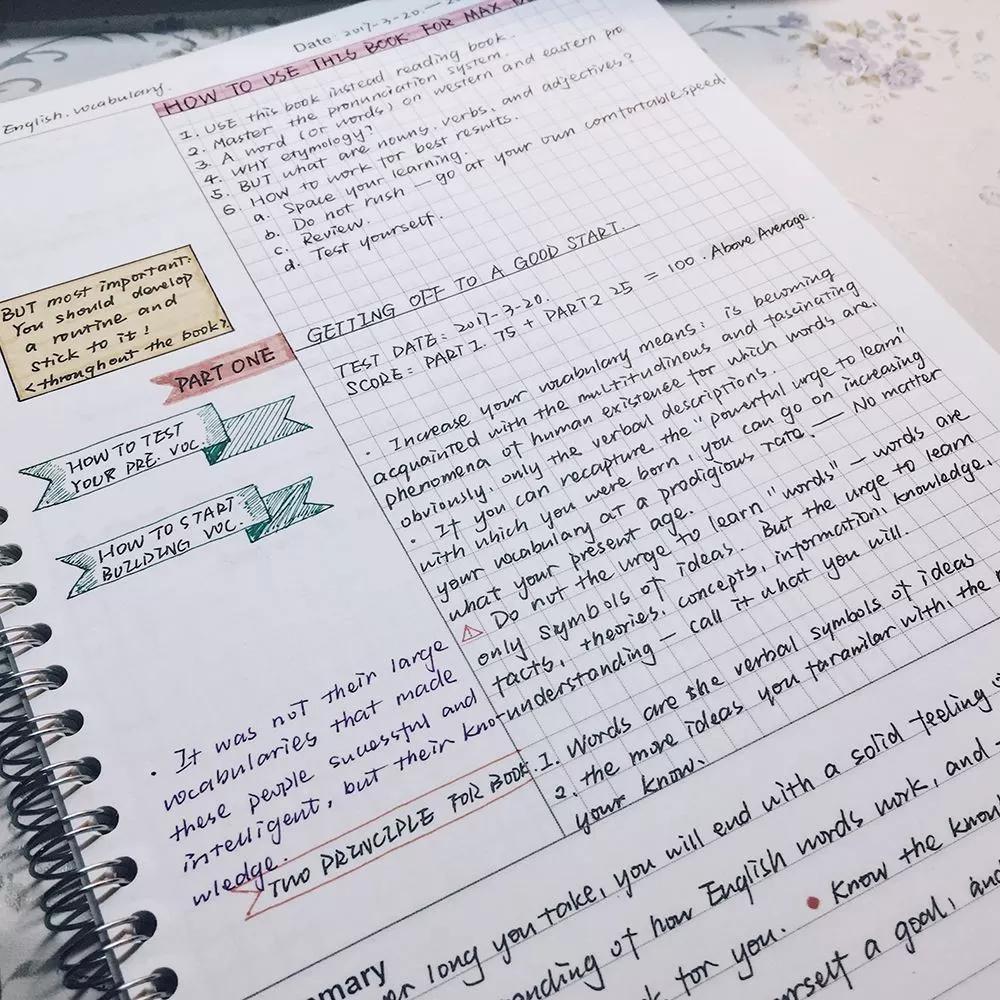 Date: 2017-3-20.-
English. vocabulary.
HOW TO USE THIS BOOK FOR MAX
1. USE this book instead reading book.
2. Master the pronunciation system.
3. A word (or words) on western and eastern pro
4. WHY etymology?
5. BUT what are nouns, verbs, and adjectives?
6. HOW to work for best results.
a. Space your learning.
b. Do not rush — go at your own comfortable speed.
c. Review.
d. Test yourself.
BUT most important:
You should develop
a routine and
stick to it!
<throughout the book>
GETTING OFF TO A GOOD START.
PART ONE
TEST DATE: 2017-3-20.
SCORE: PART 1. 75 + PART 2 25 = 100. Above Average.
HOW TO TEST
YOUR PRE. VOC.
HOW TO START
BUILDING VOC.
· Increase your vocabulary means: is becoming
acquainted with the multitudinous and fascinating
phenomena of human existence for which words are,
obviously, only the verbal descriptions.
· If you can recapture the "powerful urge to learn"
with which you were born, you can go on increasing
your vocabulary at a prodigious rate. — No matter
what your present age.
⚠ Do not the urge to learn "words" — words are
only symbols of ideas. But the urge to learn
facts, theories, concepts, information, knowledge,
understanding — call it what you will.
· It was not their large
vocabularies that made
these people sucessful and
intelligent, but their kno-
wledge.
TWO PRINCIPLE FOR BOOK.
1. Words are the verbal symbols of ideas
2. the more ideas you faramilar with, the
your know.
long you take, you will end with a solid feeling
of how English words work, and
for you. • Know the know
a goal, and